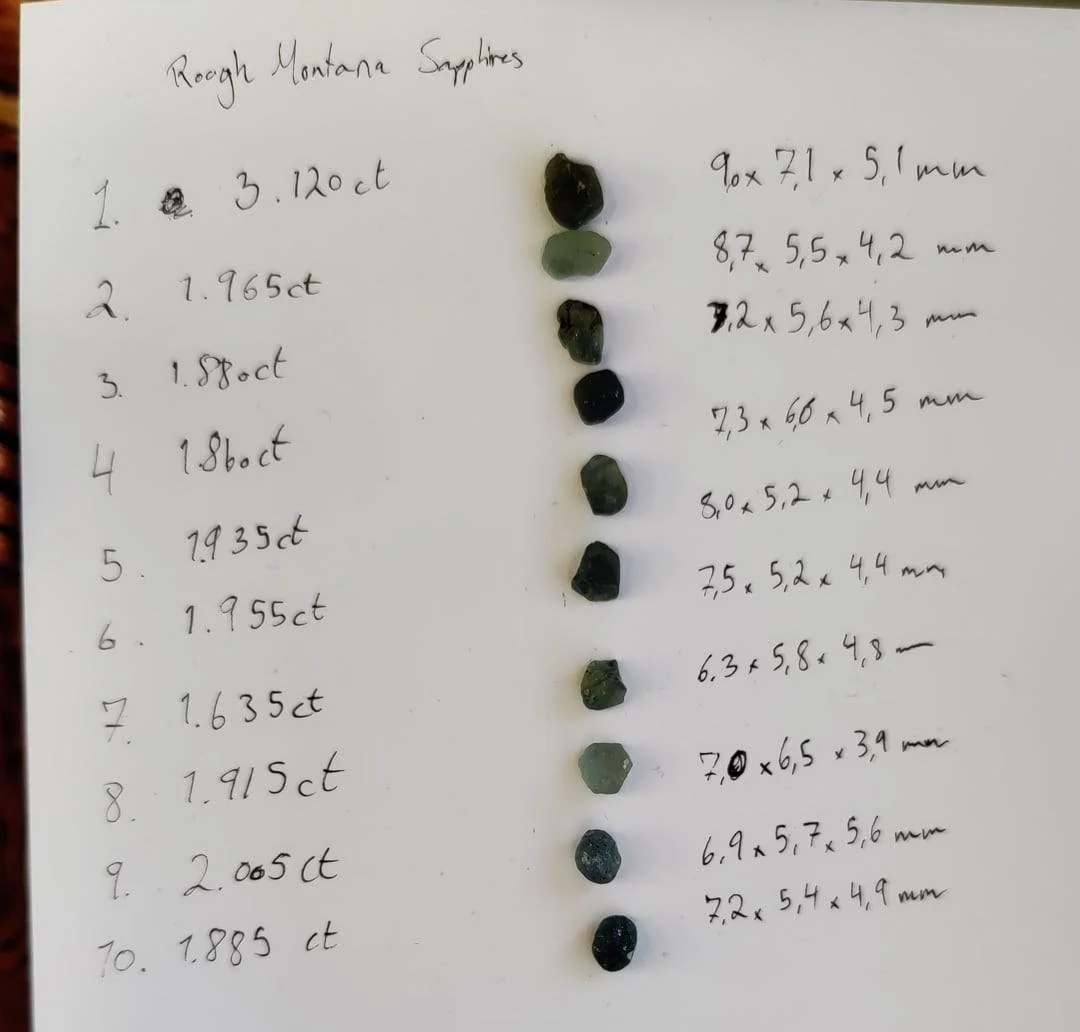 Rough Montana Sapphires
1. 3.120ct 9,0 x 7,1 x 5,1 mm
2. 1.965ct 8,7 x 5,5 x 4,2 mm
3. 1.880ct 7,2 x 5,6 x 4,3 mm
4 1.860ct 7,3 x 6,0 x 4,5 mm
5. 1.935ct 8,0 x 5,2 x 4,4 mm
6. 1.955ct 7,5 x 5,2 x 4,4 mm
7. 1.635ct 6.3 x 5,8 x 4,8
8. 1.915ct 7,0 x 6,5 x 3,9 mm
9. 2.005 ct 6,9 x 5,7 x 5,6 mm
10. 1.885 ct 7,2 x 5,4 x 4,9 mm